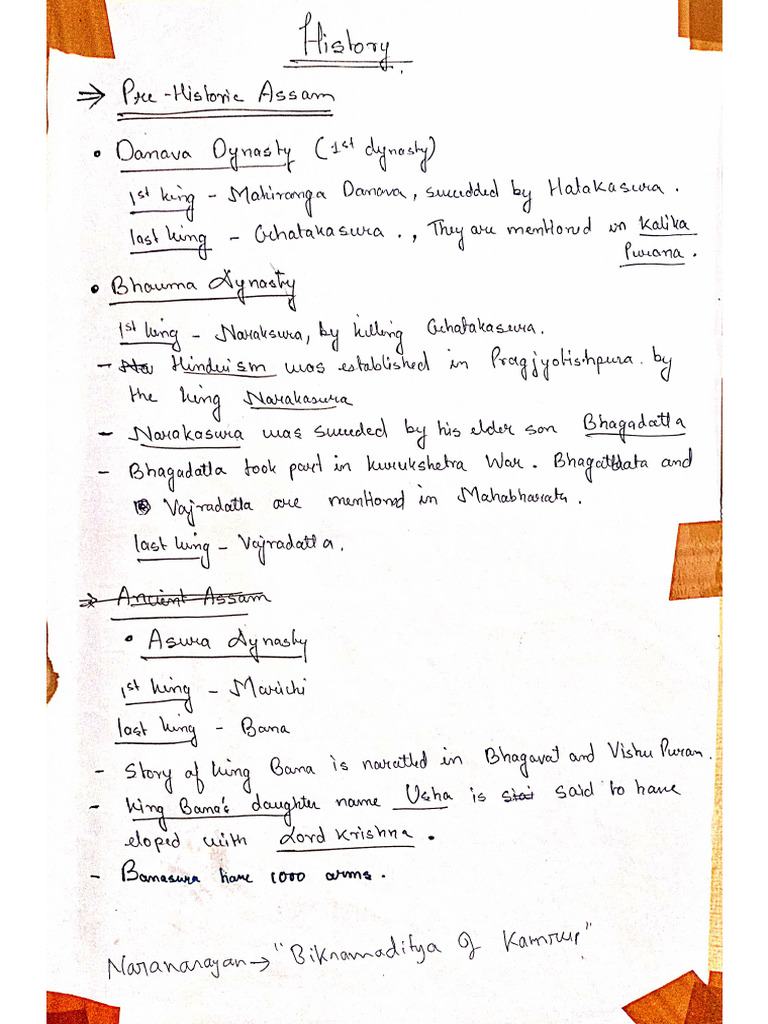 History
⇒ Pre-Historic Assam
• Danava Dynasty (1st dynasty)
1st king - Mahiranga Danava, succedded by Hatakasura.
last king - Ghatakasura ., They are mentioned in Kalika
Purana.
• Bhauma Dynasty
1st king - Naraksura, by killing Ghatakasura.
- Hinduism was established in Pragjyotishpura by
the king Narakasura
- Narakasura was succeded by his elder son Bhagadatta
- Bhagadatta took part in kurukshetra War. Bhagatdata and
Vajradatta are mentioned in Mahabharata.
last king - Vajradatta.
→ Ancient Assam
• Asura Dynasty
1st king - Marichi
last king - Bana
- Story of king Bana is naratted in Bhagavat and Vishu Puran.
- king Bana's daughter name Usha is said to have
eloped with Lord Krishna.
- Banasura have 1000 arms.
Naranarayan → "Biknamaditya of Kamrup"